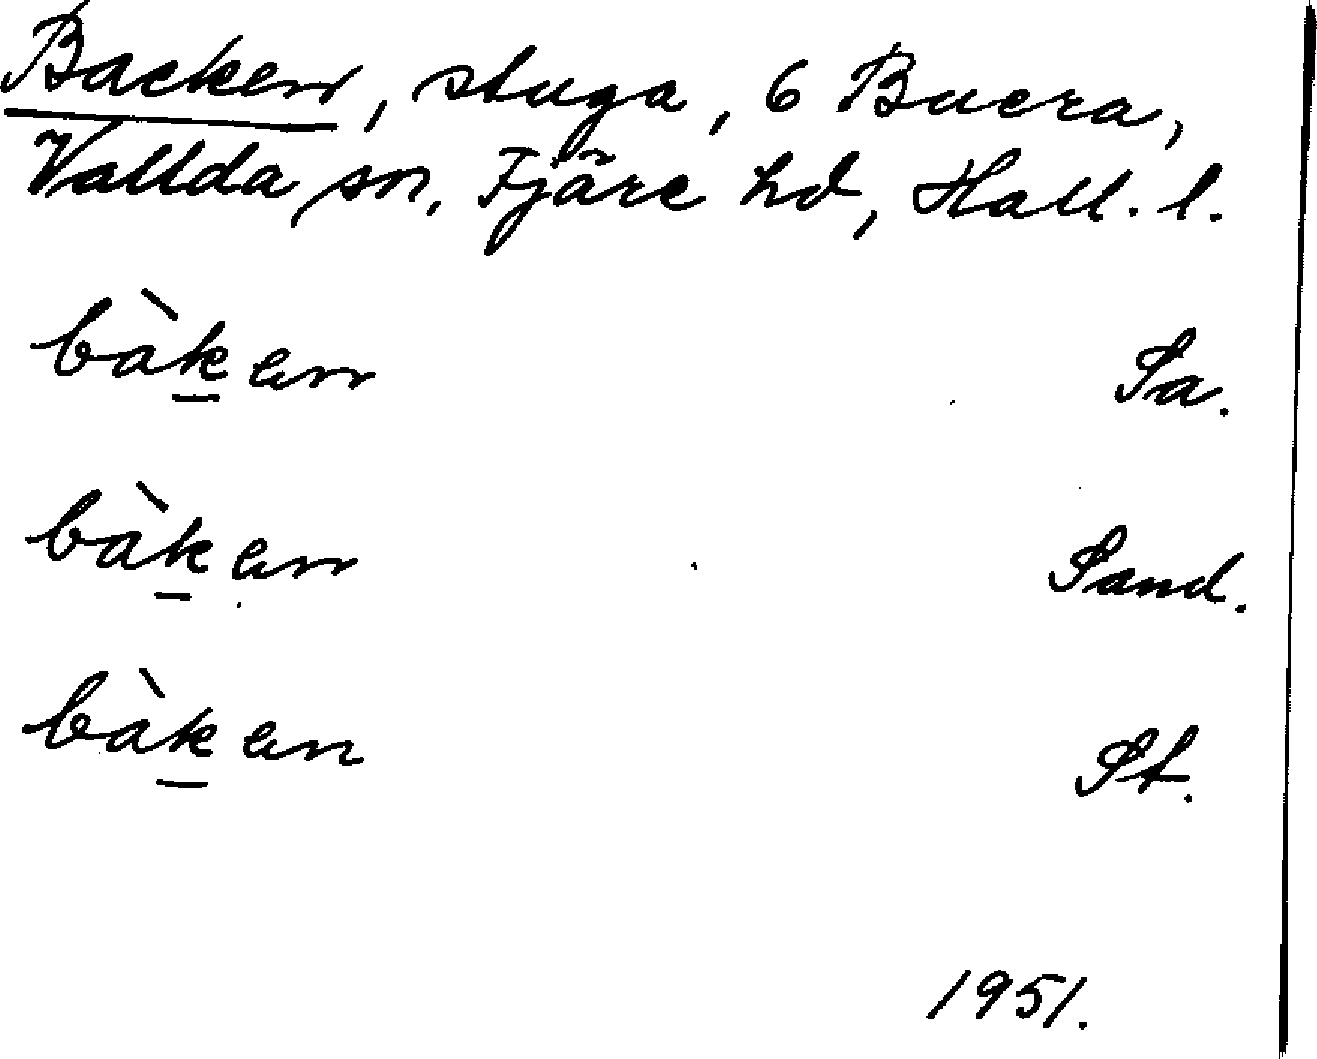 Backen, stuga, 6 Buera,
Vallda sn, Fjäre hd, Hall. l.
bàk̲en Sa.
bàk̲en Sand.
bàk̲en St.
1951.